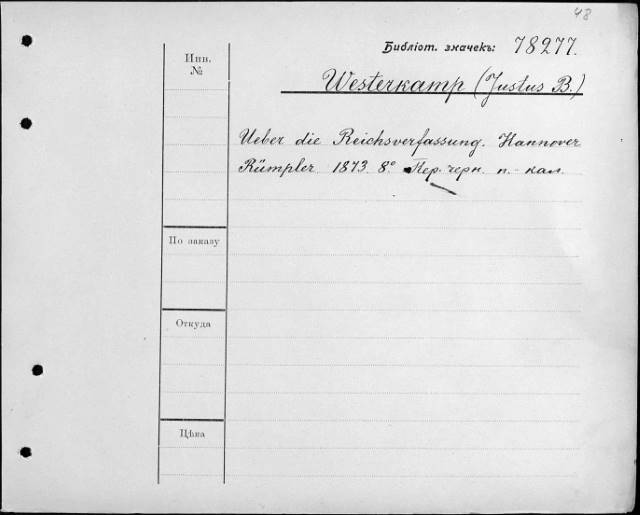 48
Библіот. значекъ: 78277.
Инв.
№
Westerkamp (Justus B.)
Ueber die Reichsverfassung. Hannover
Rümpler 1873. 8° Пер. черн. п.-кал.
По заказу
Откуда
Цѣна